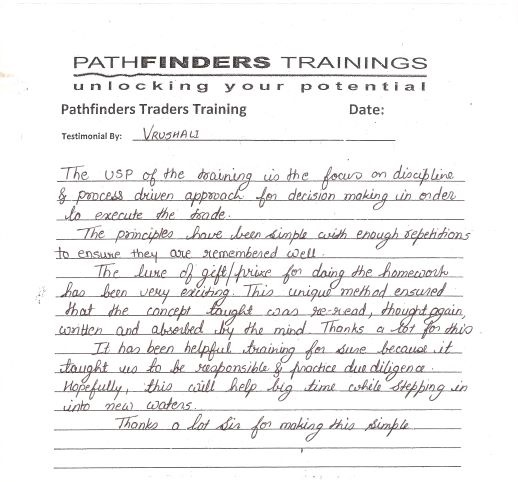 PATHFINDERS TRAININGS
unlocking your potential
Pathfinders Traders Training Date:
Testimonial By: VRUSHALI
The USP of the training is the focus on discipline
& process driven approach for decision making in order
to execute the trade.
The principles have been simple with enough repetitions
to ensure they are remembered well.
The lure of gift/prize for doing the homework
has been very exciting. This unique method ensured
that the concept taught was re-read, thought again,
written and absorbed by the mind. Thanks a lot for this.
It has been helpful training for sure because it
taught us to be responsible & practice due diligence.
Hopefully, this will help big time while stepping in
into new waters.
Thanks a lot Sir for making this simple